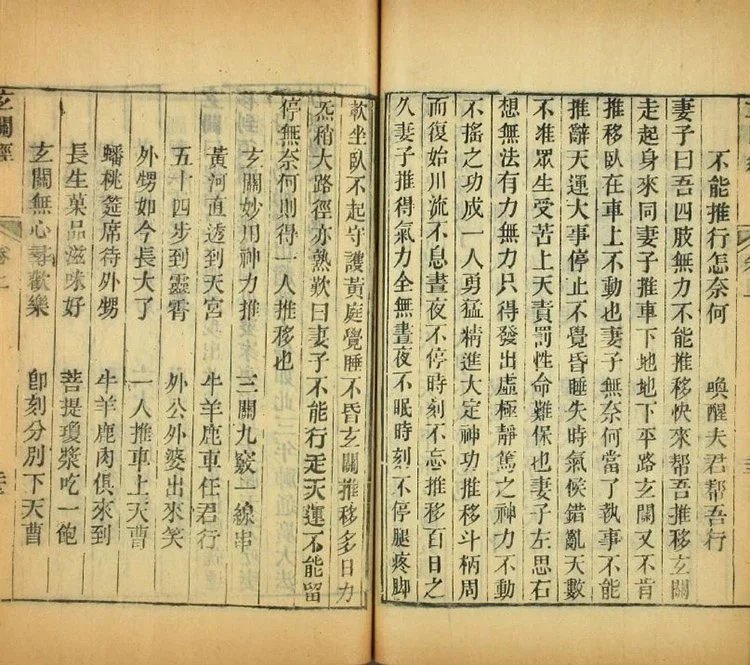 不能推行怎奈何　喚醒夫君帮吾行
妻子曰吾四肢無力不能推移快來帮吾推移玄關
走起身來同妻子推車下地地下平路玄關又不肯
推移臥在車上不動也妻子無奈何當了執事不能
推辭天運大事停止不覺昏睡失時氣候錯亂天數
不准眾生受苦上天責罰性命難保也妻子左思右
想無法有力無力只得發出虛極靜篤之神力不動
不搖之功成一人勇猛精進大定神功推移斗柄周
而復始川流不息晝夜不停時刻不忘推移百日之
久妻子推得氣力全無晝夜不眠時刻不停腿疼脚
軟坐臥不起守護黃庭覺睡不昏玄關推移多日力
炁稍大路徑亦熟歎曰妻子不能行走天運不能留
停無奈何則得一人推移也
玄關妙用神力推　三關九竅一線串
黃河直透到天宮　牛羊鹿車任君行
五十四步到靈霄　外公外婆出來笑
外甥如今長大了　一人推車上天曹
蟠桃筵席待外甥　牛羊鹿肉俱來到
長生菓品滋味好　菩提瓊漿吃一飽
玄關無心尋歡樂　卽刻分別下天曹
玄關經
卷上